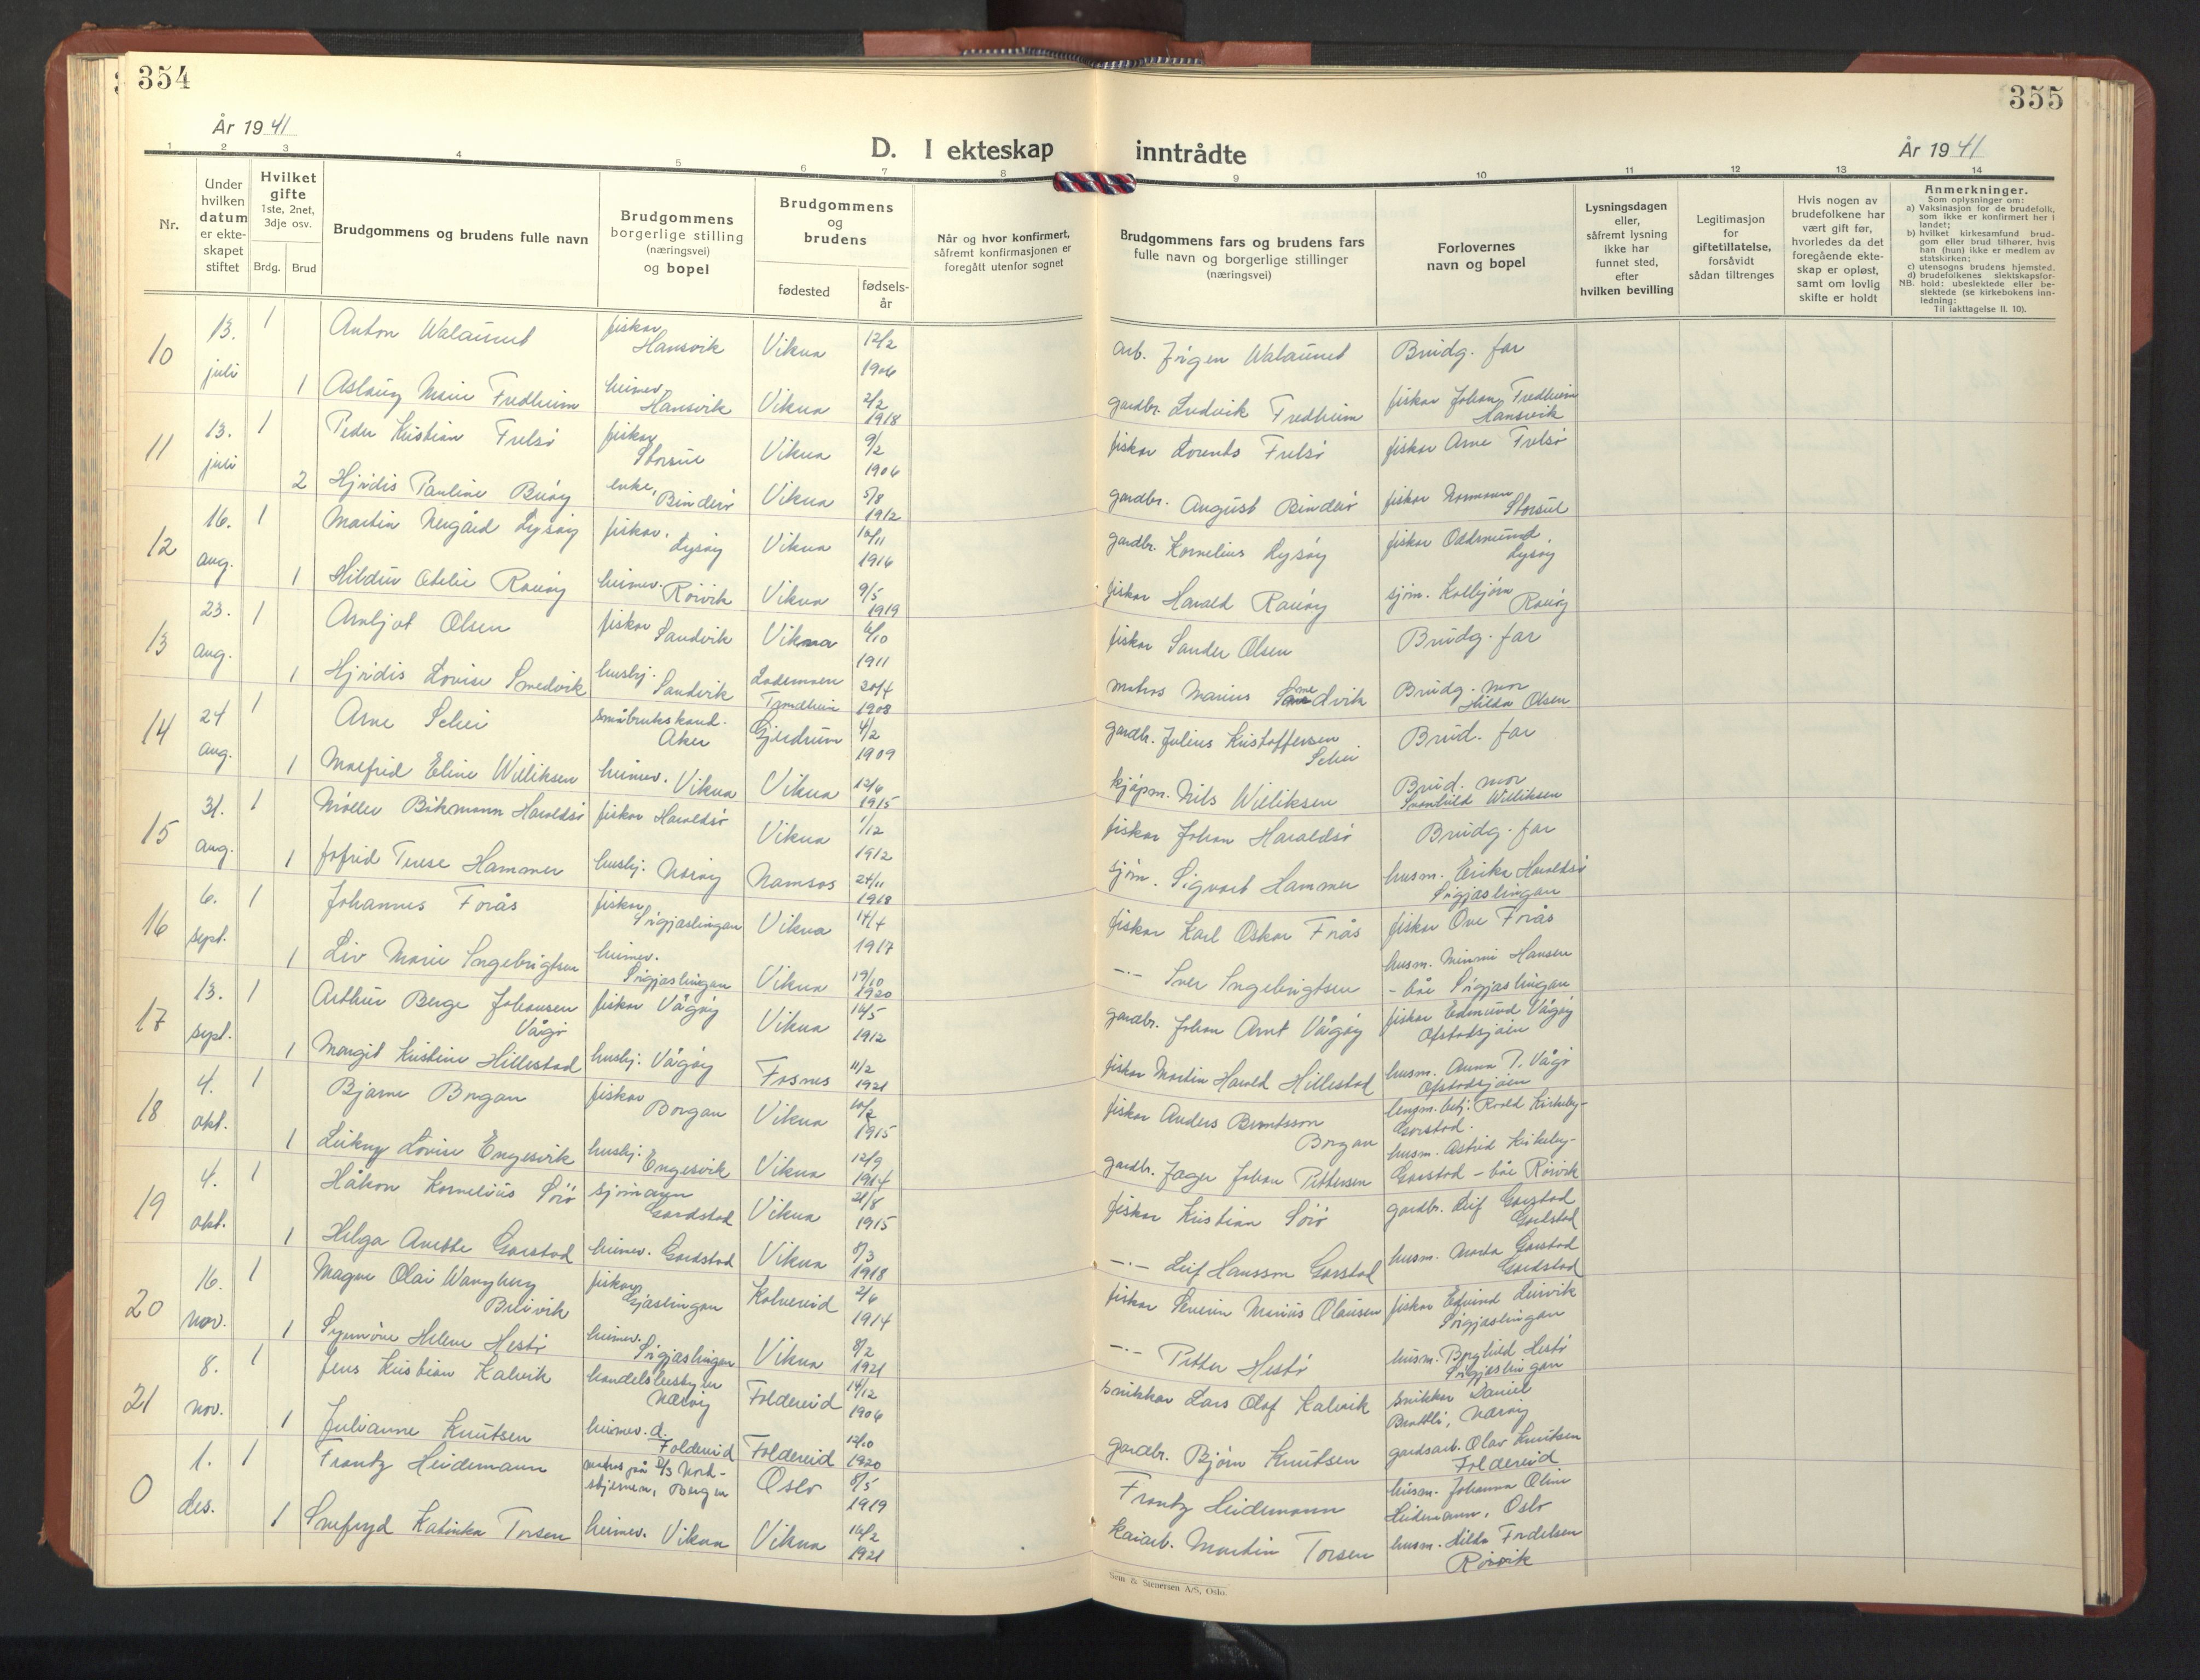 354
År 1941
D. I ekteskap
1
2
3
4
5
6
7
8
Nr.
Under hvilken datum er ekteskapet stiftet
Hvilket gifte 1ste, 2net, 3dje osv.
Brdg.
Brud
Brudgommens og brudens fulle navn
Brudgommens borgerlige stilling (næringsvei) og bopel
Brudgommens og brudens
fødested
fødsels-år
Når og hvor konfirmert, såfremt konfirmasjonen er foregått utenfor sognet
355
inntrådte
År 1941
9
10
11
12
13
14
Brudgommens fars og brudens fars fulle navn og borgerlige stillinger (næringsvei)
Forlovernes navn og bopel
Lysningsdagen eller, såfremt lysning ikke har funnet sted, efter hvilken bevilling
Legitimasjon for giftetillatelse, forsåvidt sådan tiltrenges
Hvis nogen av brudefolkene har vært gift før, hvorledes da det foregående ekteskap er opløst, samt om lovlig skifte er holdt
Anmerkninger.
Som oplysninger om:
a) Vaksinasjon for de brudefolk, som ikke er konfirmert her i landet;
b) hvilket kirkesamfund brudgom eller brud tilhører, hvis han (hun) ikke er medlem av statskirken;
c) utensogns brudens hjemsted.
d) brudefolkenes slektskapsforhold: ubeslektede eller beslektede (se kirkebokens innledning:
NB.
Til iakttagelse II. 10).
10 13. juli 1 Anton Walaunet fiskar Hansvik Vikna 12/2 1906 arb. Jørgen Walaunet Brudg. far
1 Aslaug Marie Fredheim heimev. Hansvik Vikna 2/2 1918 gardbr. Ludvik Fredheim fiskar Johan Fredheim Hansvik
11 13. juli 1 Peder Kristian Frelsø fiskar Storsul Vikna 9/2 1906 fiskar Lorents Frelsø fiskar Arne Frelsø
2 Hjørdis Pauline Buøy enke, Binderø Vikna 5/8 1912 gardbr. August Binderø fiskar Normann Storsul
12 16. aug. 1 Martin Nergård Lysøy fiskar, Lysøy Vikna 1916 gardbr. Kornelius Lysøy fiskar Oddmund, Lysøy
1 Hildur Rauøy heimev. Rørvik Vikna 9/5 1919 fiskar Harald Rauøy sjøm. Kolbjørn Rauøy
13 23. aug. 1 Arnljot Olsen fiskar Sandvik Vikna 6/10 1911 fiskar Sander Olsen Brudg. far
1 Hjørdis Lovise Smedvik hushj. Sandvik Lademoen Trondheim 20/4 1908 matros Marius Smedvik Brudg. mor Hilda Olsen
14 24 aug. 1 Arne Schei småbrukskand. Aker Gjerdrum 4/2 1909 gardbr. Julius Kristoffersen Schei Brud. far
1 Malfrid Eline Williksen heimev. Vikna Vikna 12/6 1915 kjøpm. Nils Williksen Brud. mor Svanhild Williksen
15 31. aug. 1 Møller Bikmann Haraldsø fiskar Haraldsø Vikna 1/12 1912 fiskar Johan Haraldsø Brudg. far
1 Jofrid Terese Hammer hushj. Nærøy Namsos 24/11 1918 sjøm. Sigvart Hammer husm. Erika Haraldsø Sørgjæslingan
16 6. sept. 1 Johannes Forås fiskar Sørgjæslingan Vikna 14/4 1917 fiskar Karl Oskar Forås fiskar Ove Forås
1 Liv Marie Ingebrigtsen heimev. Sørgjæslingan Vikna 19/10 1920 —·— Iver Ingebrigtsen husm. Minmi Hansen - båe Sørgjæslingan
17 13. sept. 1 Arthur Berge Johansen Vågø fiskar Vågøy Vikna 16/5 1912 gardbr. Johan Arnt Vågøy fiskar Edmund Vågøy Ofstadsjøen
1 Margit Kristine Hillestad hushj. Vågøy Fosnes 11/2 1921 fiskar Martin Harald Hillestad husm. Anna P. Vågø Ofstadsjøen
18 4. okt. 1 Bjarne Borgan fiskar Borgan Vikna 10/2 1915 fiskar Anders Berntsson Borgan lensm. betj. Roald Kirkeby-Garstad.
1 Lovise Engesvik hushj. Engesvik Vikna 12/9 1914 gardbr. Jager Johan Pettersen husm. Astrid Kirkeby-Garstad – båe Rørvik
19 4. okt. 1 Håkon Kornelius Sørø sjømann Gardstad Vikna 21/8 1915 fiskar Kristian Sørø gardbr. Leif Garstad Gardstad
1 Helga Anette Garstad heimev. Gardstad Vikna 8/3 1918 —·— Leif Hansson Garstad husm. Marta Garstad Gardstad
20 16. nov. 1 Magne Olai Wangberg fiskar Gjæslingan Kolvereid 2/6 1914 fiskar Severin Marius Olausen fiskar Edvind Leirvik Sørgjæslingan
1 Synnøve Helene Hestø heimev. Sørgjæslingan Vikna 8/2 1921 —·— Petter Hestø husm. Borghild Hestø Sørgjæslingan
21 8. nov. 1 Jens Kristian Kalvik handelsbestyrer Nærøy Foldereid 14/12 1906 snikkar Lars Olaf Kalvik snikkar Daniel Brattli, Nærøy
1 Julianne Knutsen heimev. d. Foldereid Foldereid 12/10 1920 gardbr. Bjørn Knutsen gardsarb. Olav Knutsen Foldereid
0 1. des. 1 Frantz Heidemann matros på D/S Nordstjernen, Bergen Oslo 8/5 1919 Frantz Heidemann husm. Johanna Oline Heidemann, Oslo
1 Snefryd Katinka Torsen heimev. Vikna Vikna 16/2 1921 kaiarb. Martin Torsen husm. Hilda Fredriksen Rørvik
Sem & Stenersen A/S, Oslo.